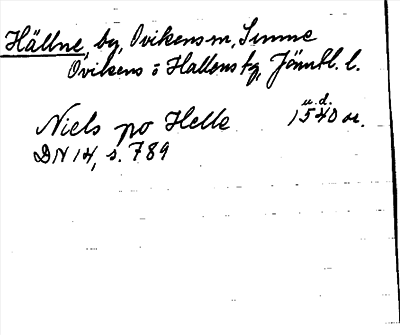 Hällne, by, Ovikens m, Sunne
Ovikens o Hallens tg, Jämtl. l.
u.d.
Niels po Helle 1540 ar.
DN 14, s. 789